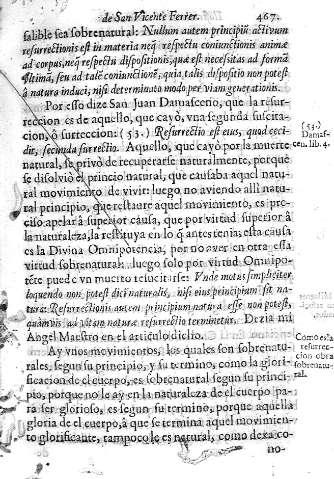 de San Vicente Ferier. 467.
salible sea sobrenatural: Nullum autem principiũ activum
resurrectionis est in materia neq; respectu coniunctionis animæ
ad corpus, neq; respectu dispositionis, quæ est necesitas ad formã
vltimã, seu ad talẽ coniunctionẽ, quia talis dispositio non potest
à natura induci, nisi determinato modo per viam generationis.
Por esso dize San Juan Damasceno, que la resur-
reccion es de aquello, que cayò, vna segunda suscita-
cion, ò surreccion: (53.) Resurrectio est eius, quod ceci-
dit, secunda surrectio. Aquello, que cayò por la muerte
natural, se privò de recuperarse naturalmente, porque
se disolviò el princio natural, que causaba aquel natu-
ral movimiento de vivir: luego no aviendo alli natu-
ral principio, que restaure aquel movimiento, es pre-
ciso apelar à superior causa, que por virtud superior à
la naturaleza, la restituya en lo q̃ antes tenia; esta causa
es la Divina Omnipotencia, por no aver en otra essa
virtud sobrenatural: luego solo por virtud Omnipo-
tẽte puede vn muerto resucitarse: Vnde motus simpliciter
loquendo non potest dici naturalis, nisi eius principium sit na-
turæ: Resurrectionis autem principium natura esse non potest,
quamvis ad vitam naturæ resurrectio terminetur. Dezia mi
Angel Maestro en el articulo dicho.
Ay vnos movimientos, los quales son sobrenatu-
rales, segun su principio, y su termino, como la glori-
ficacion de el cuerpo, es sobrenatural segun su princi-
pio, porque no le ay en la naturaleza de el cuerpo pa-
ra ser glorioso, es segun su termino, porque aquella
gloria de el cuerpo, à que se termina aquel movimien-
to glorificante, tampoco le es natural, como dexa co-
no-
(53.)
Damas-
cen. lib. 4.
Como esta
resurrec-
cion obra
sobrenatu-
ral.